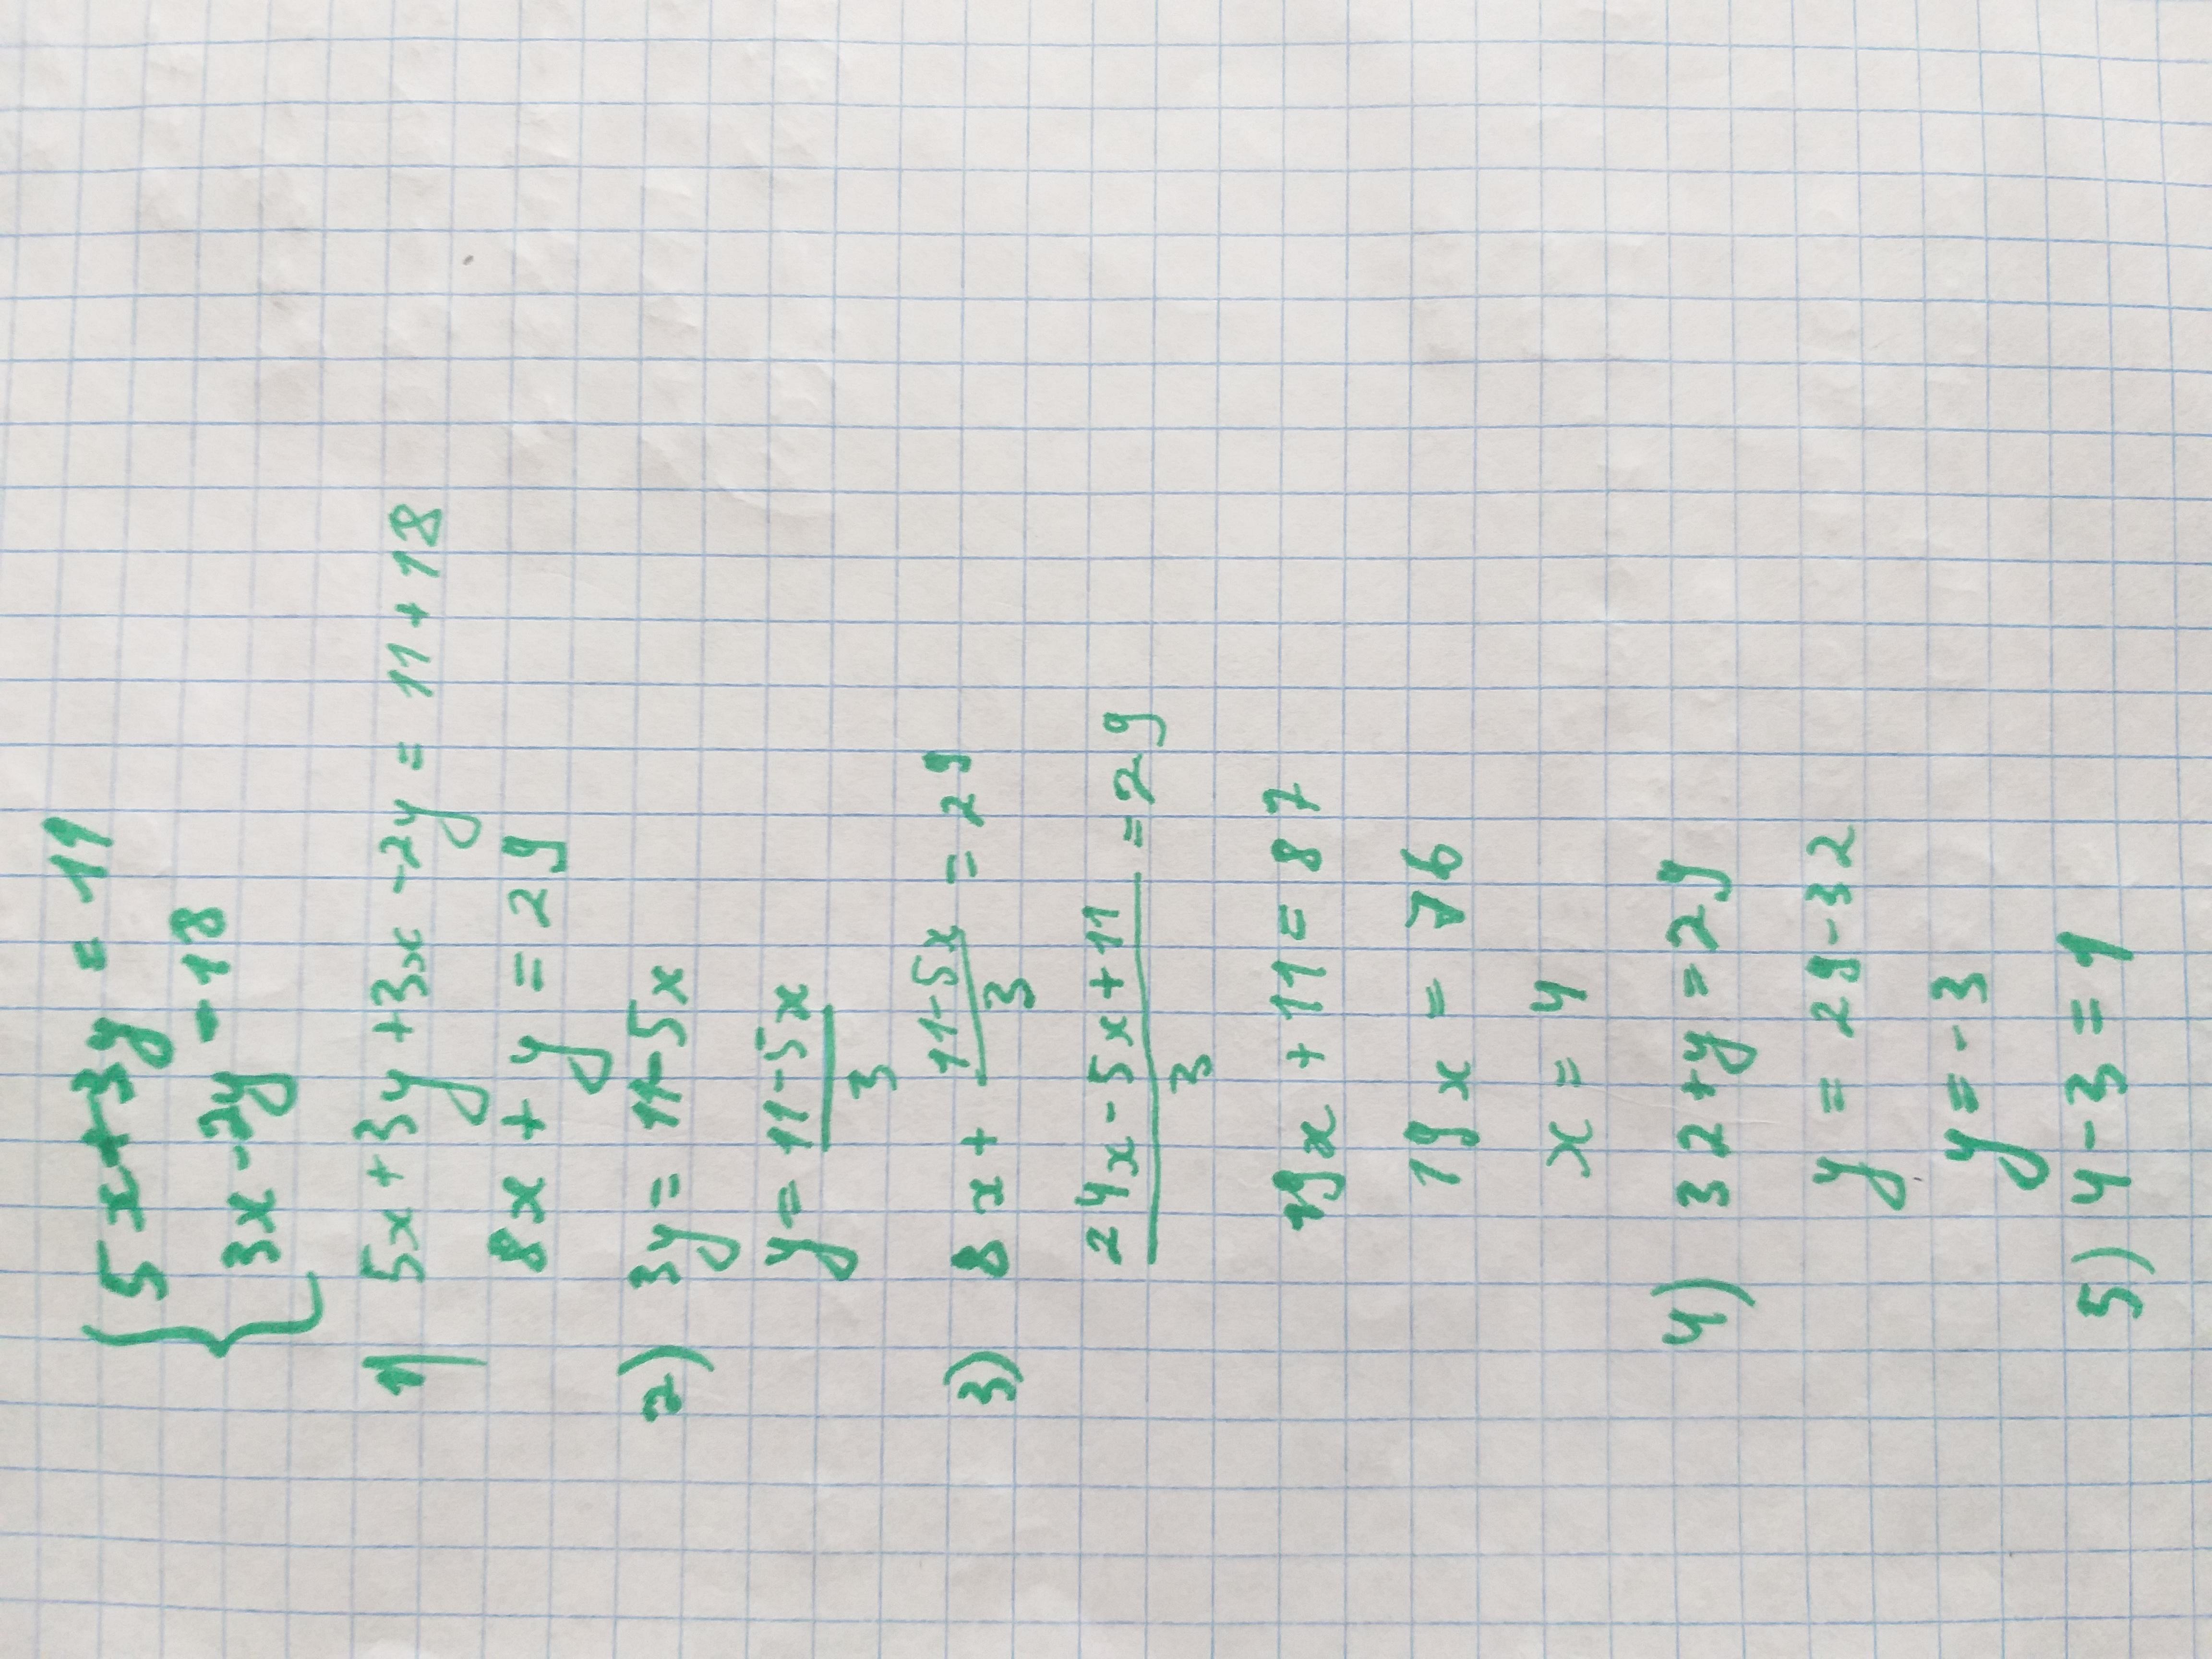 {5x+3y=11
3x-2y=18
1) 5x+3y+3x-2y=11+18
8x+y=29
2) 3y=11-5x
y=\frac{11-5x}{3}
3) 8x+\frac{11-5x}{3}=29
\frac{24x-5x+11}{3}=29
19x+11=87
19x=76
x=4
4) 32+y=29
y=29-32
y=-3
5) 4-3=1